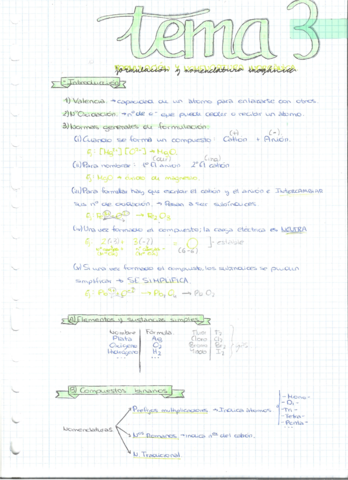 tema 3
formulación y nomenclatura inorgánica
- Introducción
1) Valencia: → capacidad de un átomo para enlazarse con otros.
2) Nº Oxidación: → nº de e⁻ que puede ceder o recibir un átomo.
3) Normas generales de formulación:
(1) Cuando se forma un compuesto: Catión + Anión.
(+) (-)
→ MgO.
(2) Para nombrar: 1º Anión 2º Catión
Ej: MgO → óxido de magnesio.
(3) Para formular hay que escribir el catión y el anión e intercambiar
sus nº de oxidación: → Pasan a ser subíndices.
(4) Una vez formado el compuesto, la carga eléctrica es NEUTRA
(5) Si una vez formado el compuesto, los subíndices se pueden
simplificar → SE SIMPLIFICA
→ Pb₂O₄ → PbO₂
A) Elementos y sustancias simples
Nombre Fórmula
Plata Ag
Oxígeno O₂
Hidrógeno H₂
Flúor F₂
Cloro Cl₂
Bromo Br₂
Iodo I₂
B) Compuestos binarios
Nomenclaturas
Prefijos multiplicativos → Indica átomos
- Mono -
- Di -
- Tri -
- Tetra -
- Penta -
Nºs Romanos → indica nº del catión.
N. Tradicional